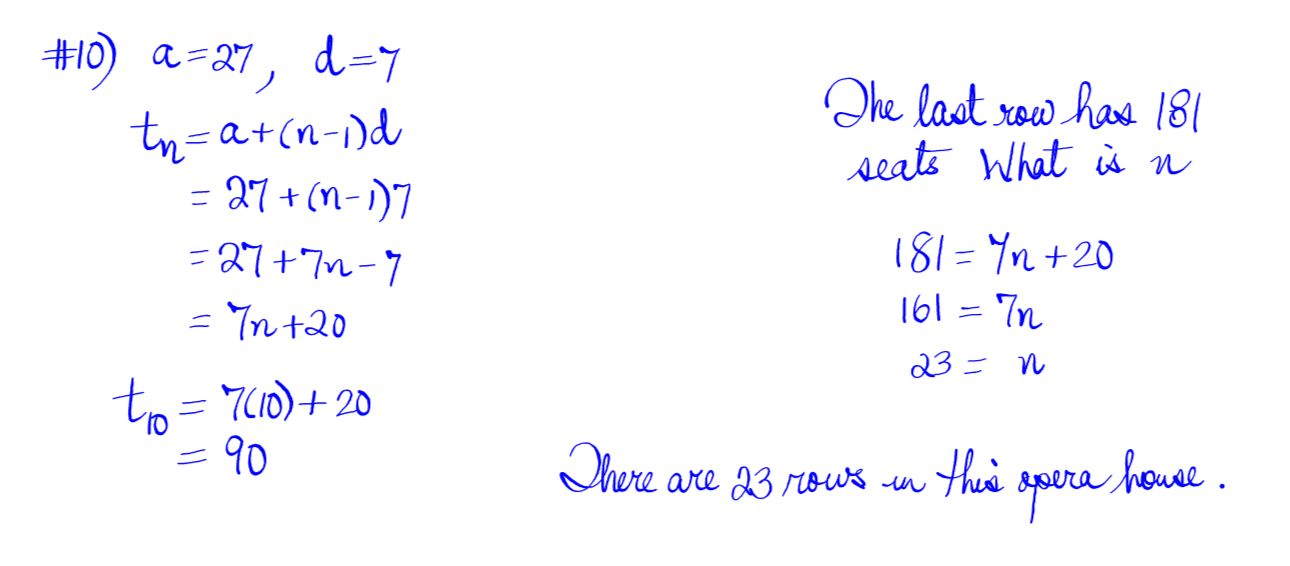 #10) a=27, d=7
tₙ=a+(n-1)d
= 27+(n-1)7
=27+7n-7
= 7n+20
t₁₀ = 7(10)+20
= 90
The last row has 181
seats What is n
181=7n+20
161 = 7n
23 = n
There are 23 rows in this opera house.